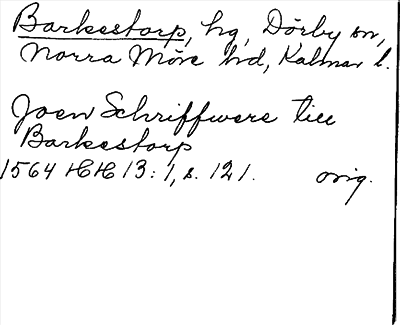 Barkestorp, hg, Dörby sn,
Norra Möre hd, Kalmar l.
Joen Schriffwere till
Barkestorp
1564 HH 13:1, s. 121. orig.